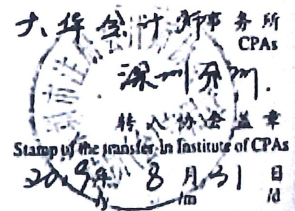 大华会计师事务所
CPAs
深圳分所
转入协会盖章
Stamp of the transfer in Institute of CPAs
2019年 8月31日
/y /m /d